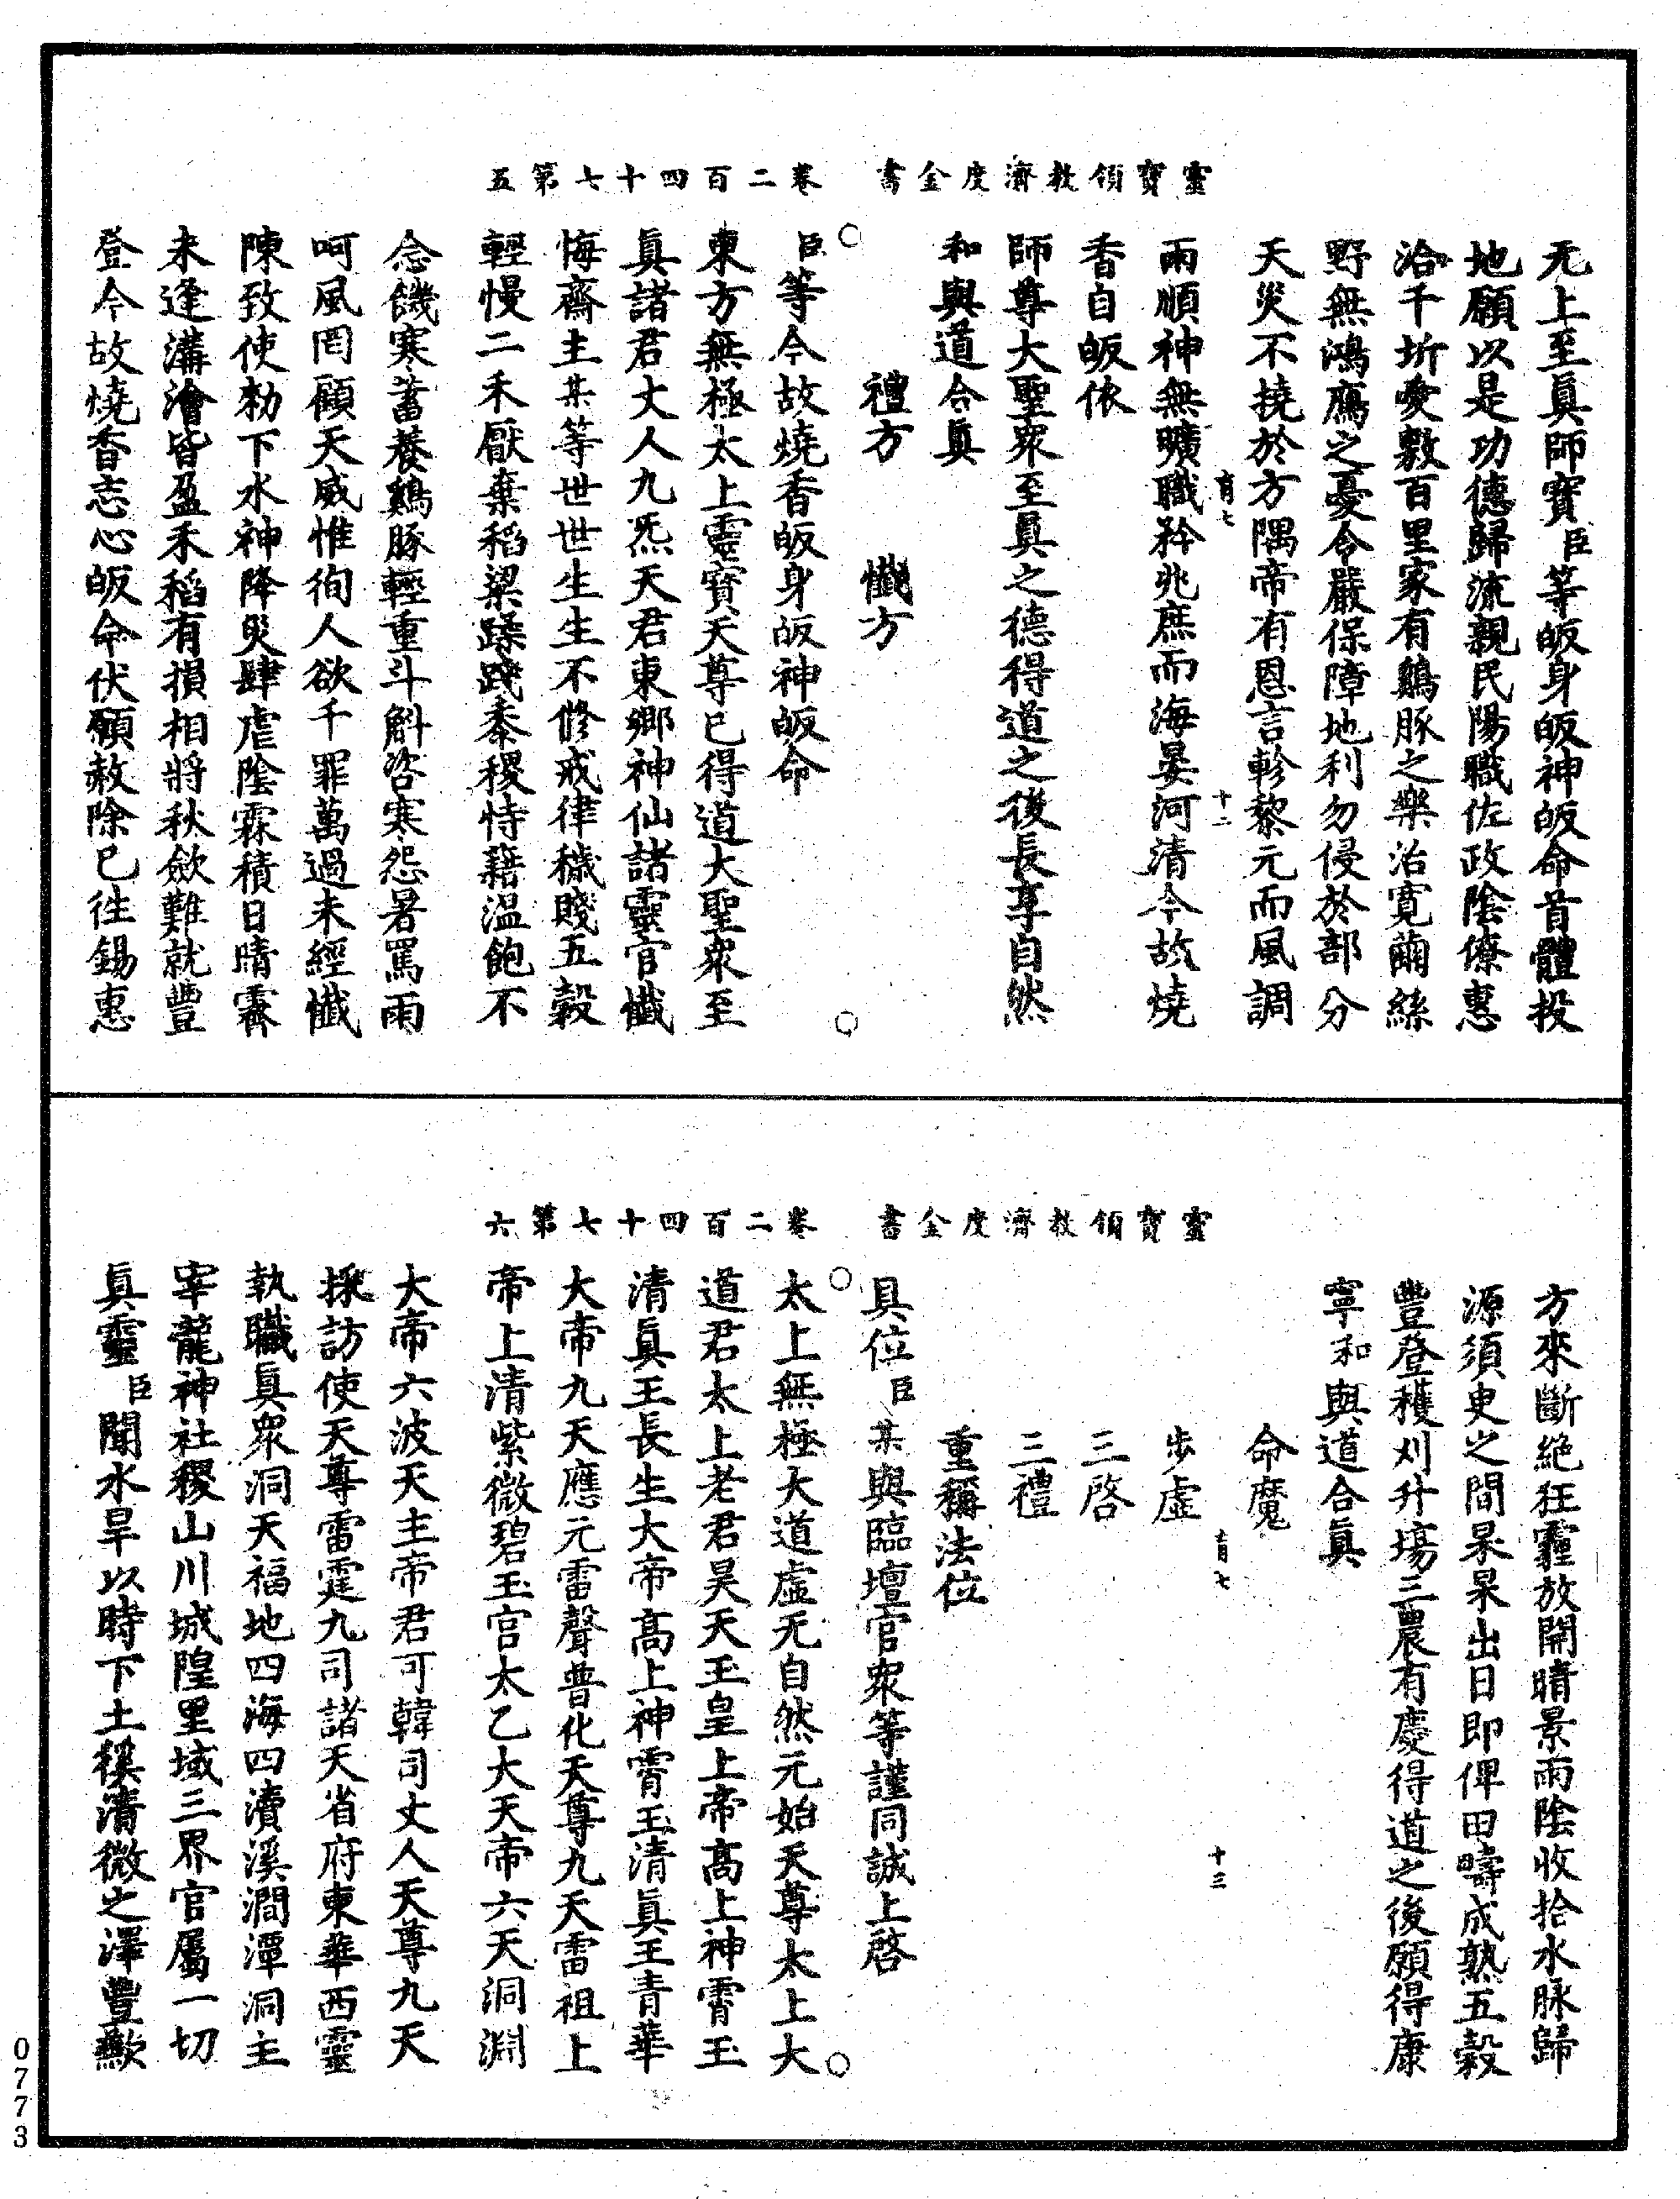 靈寶領教濟度金書　卷二百四十七第五
无上至眞師寳臣等皈身皈神皈命首體投
地願以是功德歸流親民陽職佐政陰僚惠
洽千圻愛敷百里家有鷄豚之樂治寬繭絲
野無鴻鴈之憂令嚴保障地利勿侵於部分
天災不撓於方隅帝有恩言軫黎元而風調
育七　十二
雨順神無曠職矜兆庶而海晏河清今故燒
香自皈依
師尊大聖衆至眞之德得道之後長享自然
和與道合眞
禮方　懺方
臣等今故燒香皈身皈神皈命
東方無極太上靈寳天尊已得道大聖衆至
眞諸君丈人九炁天君東鄉神仙諸靈官懺
悔齋主某等世世生生不修戒律穢賤五穀
輕慢二禾厭棄稻粱蹂踐黍稷恃藉溫飽不
念饑寒蓄養鷄豚輕重斗斛咨寒怨暑罵雨
呵風罔顧天威惟徇人欲千罪萬過未經懺
陳致使勑下水神降災肆虐陰霖積日晴霽
未逢溝澮皆盈禾稻有損相將秋斂難就豐
登今故燒香志心皈命伏願赦除已往錫惠
靈寶領教濟度金書　卷二百四十七第六
方來斷絶狂霾放開晴景雨陰收拾水脉歸
源須臾之間杲杲出日即俾田疇成熟五穀
豐登穫刈升場三農有慶得道之後願得康
寧和與道合眞
命魔
育七　十三
步虛
三啓
三禮
重稱法位
具位臣某與臨壇官衆等謹同誠上啓
太上無極大道虛无自然元始天尊太上大
道君太上老君昊天玉皇上帝髙上神霄玉
清眞王長生大帝髙上神霄玉清眞王青華
大帝九天應元雷聲普化天尊九天雷祖上
帝上清紫微碧玉宫太乙大天帝六天洞淵
大帝六波天主帝君可韓司丈人天尊九天
採訪使天尊雷霆九司諸天省府東華西靈
執職眞衆洞天福地四海四瀆溪澗潭洞主
宰龍神社稷山川城隍里域三界官屬一切
眞靈臣聞水旱以時下土徯清微之澤豐歉
0773